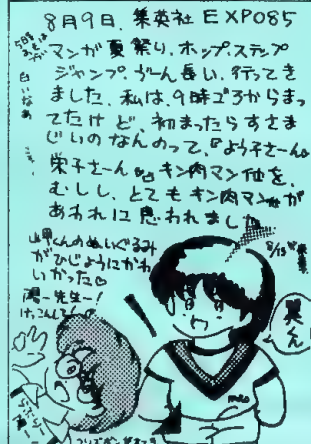 8月9日、集英社EXPO85
マンガ夏祭り、ホップステップ
ジャンプがん長い、行ってき
ました。私は、9時ごろからまっ
てたけど、初まったらすさま
じいのなんのって、『よう子さーん』
栄子さーん』とキン肉マン他を、
むしし、とてもキン肉マンが
あわれに思われました
岬くんのぬいぐるみ
がひじょうにかわ
いかった
陽一先生ー!
けっこんして
白いなあ
8/13
翼くん